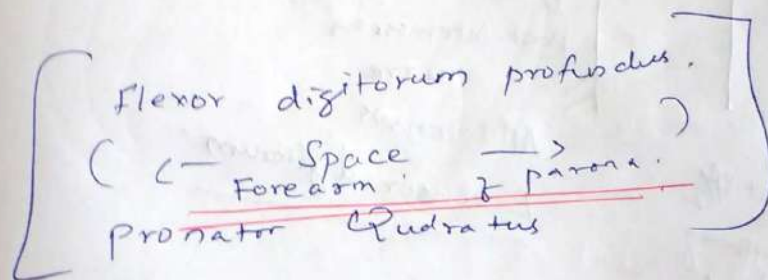 Flexor digitorum profundus.
( ← Space → )
Forearm. z parona.
Pronator Qudratus